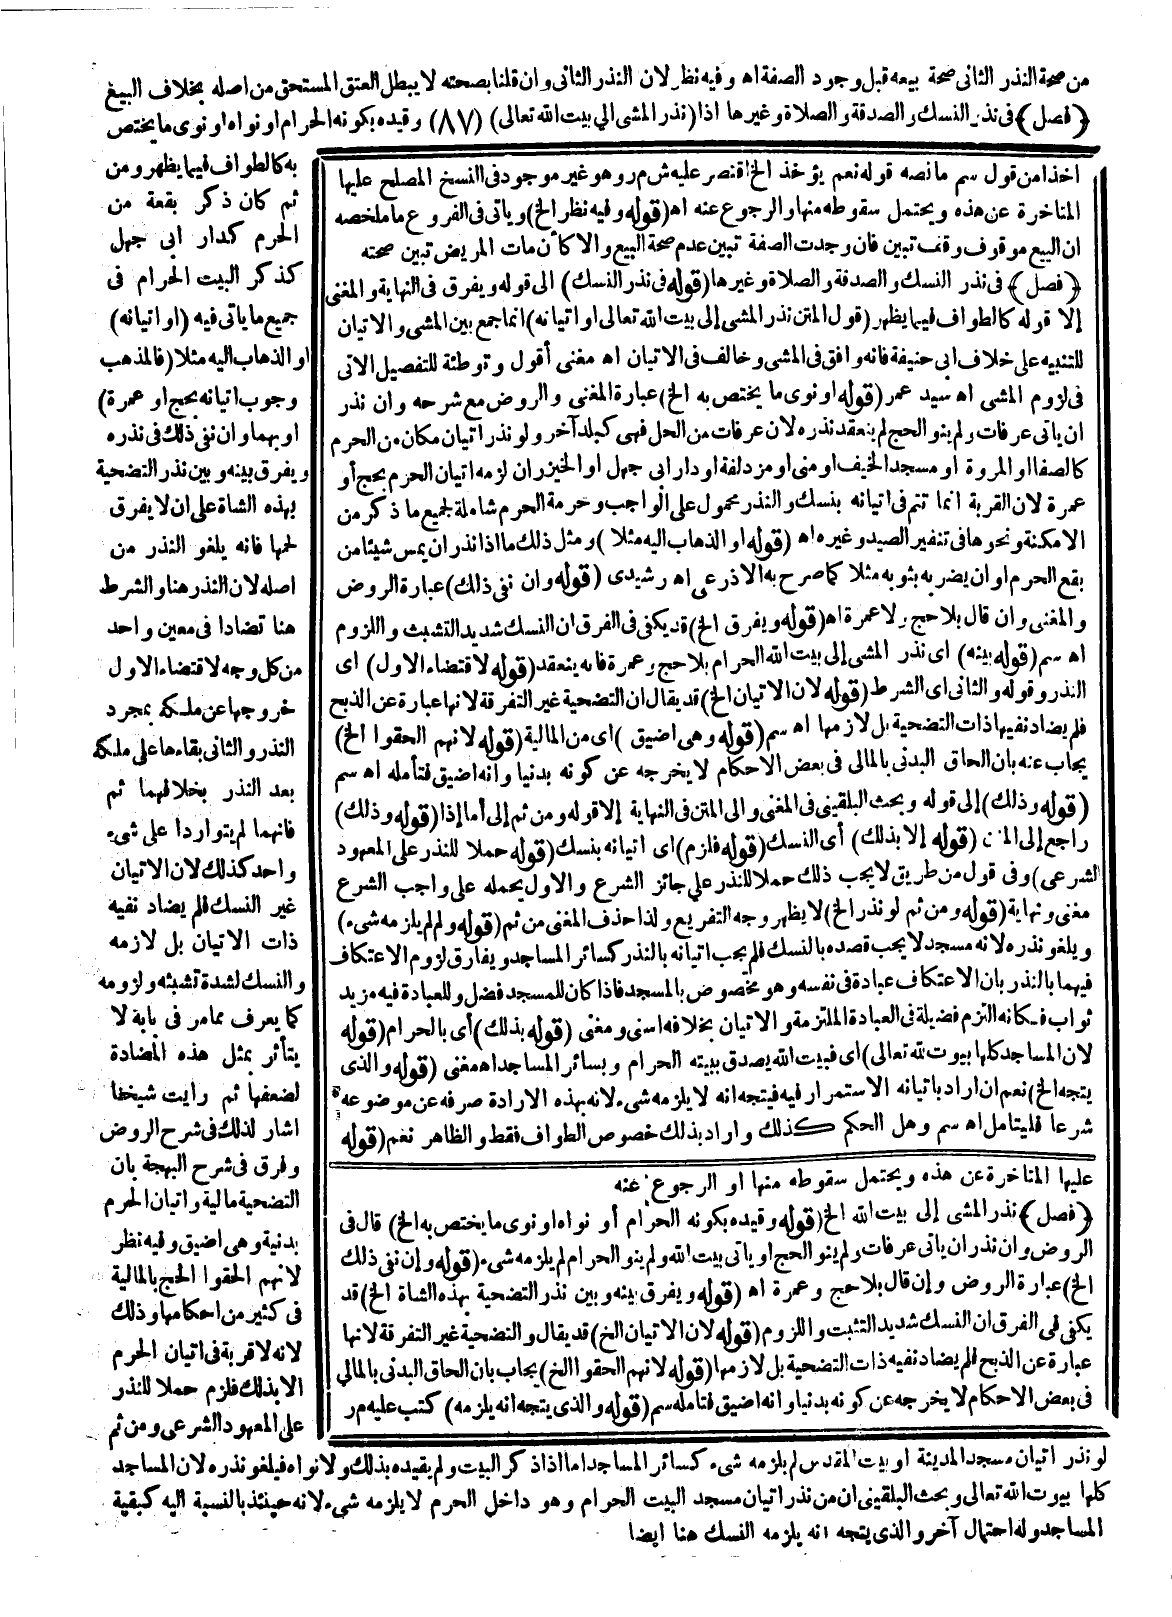 من صحة النذر الثانى صحة بيعه قبل وجود الصفة اه وفيه نظر لان النذر الثانى وان قلنا بصحته لا يبطل العتق المستحق من اصله بخلاف البيع
(فصل) فى نذر النسك والصدقة والصلاة وغيرها اذا (نذر المشى الى بيت الله تعالى) (٨٧) وقيده بكونه الحرام او نواه او نوى ما يختص
به كالطواف فيما يظهر ومن
ثم كان ذكر بقعة من
الحرم كدار ابى جهل
كذكر البيت الحرام فى
جميع ما ياتى فيه (او اتيانه)
او الذهاب اليه مثلا (فالمذهب
وجوب اتيانه بحج او عمرة)
او بهما وان نفى ذلك فى نذره
ويفرق بينه وبين نذر التضحية
بهذه الشاة على ان لا يفرق
لحمها فانه يلغو النذر من
اصله لان النذر هنا والشرط
هنا تضادا فى معين واحد
من كل وجه لاقتضاء الاول
خروجها عن ملكه بمجرد
النذر والثانى بقاءها على ملكه
بعد النذر بخلافهما ثم
فانهما لم يتواردا على شىء
واحد كذلك لان الاتيان
غير النسك فلم يضاد نفيه
ذات الاتيان بل لازمه
والنسك لشدة تشبثه ولزومه
كما يعرف مما مر فى بابه لا
يتأثر بمثل هذه المضادة
لضعفها ثم رايت شيخنا
اشار لذلك فى شرح الروض
وفرق فى شرح البهجة بان
التضحية مالية واتيان الحرم
بدنية وهى اضيق وفيه نظر
لانهم الحقوا الحج بالمالية
فى كثير من احكامها وذلك
لانه لا قربة فى اتيان الحرم
الا بذلك فلزم حملا للنذر
على المعهود الشرعى ومن ثم
لو نذر اتيان مسجد المدينة او بيت المقدس لم يلزمه شىء كسائر المساجد اما اذا ذكر البيت ولم يقيده بذلك ولا نواه فيلغو نذره لان المساجد
كلها بيوت الله تعالى وبحث البلقينى ان من نذر اتيان مسجد البيت الحرام وهو داخل الحرم لا يلزمه شىء لانه حينئذ بالنسبة اليه كبقية
المساجد وله احتمال آخر والذى يتجه انه يلزمه النسك هنا ايضا
اخذا من قول سم ما نصه قوله نعم يؤخذ الخ اقتصر عليه ش م ر وهو غير موجود فى النسخ المصلح عليها
المتاخرة عن هذه ويحتمل سقوطه منها والرجوع عنه اه (قوله وفيه نظر الخ) وياتى فى الفروع ما ملخصه
ان البيع موقوف وقف تبين فان وجدت الصفة تبين عدم صحة البيع والا كأن مات المريض تبين صحته
(فصل) فى نذر النسك والصدقة والصلاة وغيرها (قوله فى نذر النسك) الى قوله ويفرق فى النهاية والمغنى
إلا قوله كالطواف فيما يظهر (قول المتن نذر المشى إلى بيت الله تعالى او اتيانه) انما جمع بين المشى والاتيان
للتنبيه على خلاف ابى حنيفة فانه وافق فى المشى وخالف فى الاتيان اه مغنى أقول وتوطئة للتفصيل الاتى
فى لزوم المشى اه سيد عمر (قوله او نوى ما يختص به الخ) عبارة المغنى والروض مع شرحه وان نذر
ان ياتى عرفات ولم ينو الحج لم ينعقد نذره لان عرفات من الحل فهى كبلد آخر ولو نذر اتيان مكان من الحرم
كالصفا او المروة او مسجد الخيف او منى او مزدلفة او دار ابى جهل او الخيزران لزمه اتيان الحرم بحج أو
عمرة لان القربة انما تتم فى اتيانه بنسك والنذر محمول على الواجب وحرمة الحرم شاملة لجميع ما ذكر من
الامكنة ونحوها فى تنفير الصيد وغيره اه (قوله او الذهاب اليه مثلا) ومثل ذلك ما اذا نذر ان يمس شيئا من
بقع الحرم او ان يضربه بثوبه مثلا كما صرح به الاذرعى اه رشيدى (قوله وان نفى ذلك) عبارة الروض
والمغنى وان قال بلا حج ولا عمرة اه (قوله ويفرق الخ) قد يكفى فى الفرق ان النسك شديد التشبث واللزوم
اه سم (قوله بينه) اى نذر المشى إلى بيت الله الحرام بلا حج وعمرة فانه ينعقد (قوله لاقتضاء الاول) اى
النذر وقوله والثانى اى الشرط (قوله لان الاتيان الخ) قد يقال ان التضحية غير التفرقة لانها عبارة عن الذبح
فلم يضاد نفيها ذات التضحية بل لازمها اه سم (قوله وهى اضيق) اى من المالية (قوله لانهم الحقوا الخ)
يجاب عنه بان الحاق البدنى بالمالى فى بعض الاحكام لا يخرجه عن كونه بدنيا وانه اضيق فتأمله اه سم
(قوله وذلك) إلى قوله وبحث البلقينى فى المغنى والى المتن فى النهاية إلا قوله ومن ثم إلى أما إذا (قوله وذلك)
راجع إلى المتن (قوله إلا بذلك) أى النسك (قوله فلزم) اى اتيانه بنسك (قوله حملا للنذر على المعهود
الشرعى) وفى قول من طريق لا يجب ذلك حملا للنذر على جائز الشرع والاول يحمله على واجب الشرع
مغنى ونهاية (قوله ومن ثم لو نذر الخ) لا يظهر وجه التفريع ولذا حذف المغنى من ثم (قوله ولم يلزمه شىء)
ويلغو نذره لانه مسجد لا يجب قصده بالنسك فلم يجب اتيانه بالنذر كسائر المساجد ويفارق لزوم الاعتكاف
فيهما بالنذر بان الاعتكاف عبادة فى نفسه وهو مخصوص بالمسجد فاذا كان للمسجد فضل وللعبادة فيه مزيد
ثواب فكانه التزم فضيلة فى العبادة الملتزمة والاتيان بخلافه اسنى ومغنى (قوله بذلك) أى بالحرام (قوله
لان المساجد كلها بيوت لله تعالى) اى فبيت الله يصدق ببيته الحرام وبسائر المساجد اه مغنى (قوله والذى
يتجه الخ) نعم ان اراد باتيانه الاستمرار فيه فيتجه انه لا يلزمه شىء لانه بهذه الارادة صرفه عن موضوعه
شرعا فليتامل اه سم وهل الحكم كذلك واراد بذلك خصوص الطواف فقط والظاهر نعم (قوله
عليها المتاخرة عن هذه ويحتمل سقوطه منها او الرجوع عنه
(فصل) نذر المشى إلى بيت الله الخ (قوله وقيده بكونه الحرام أو نواه او نوى ما يختص به الخ) قال فى
الروض وان نذر ان ياتى عرفات ولم ينو الحج او ياتى بيت الله ولم ينو الحرام لم يلزمه شىء (قوله وإن نفى ذلك
الخ) عبارة الروض وإن قال بلا حج وعمرة اه (قوله ويفرق بينه وبين نذر التضحية بهذه الشاة الخ) قد
يكفى فى الفرق ان النسك شديد التثبت واللزوم (قوله لان الاتيان الخ) قد يقال والتضحية غير التفرقة لانها
عبارة عن الذبح فلم يضاد نفيه ذات التضحية بل لازمها (قوله لانهم الحقوا الخ) يجاب بان الحاق البدنى بالمالى
فى بعض الاحكام لا يخرجه عن كونه بدنيا وانه اضيق فتامله سم (قوله والذى يتجه انه يلزمه) كتب عليه م ر